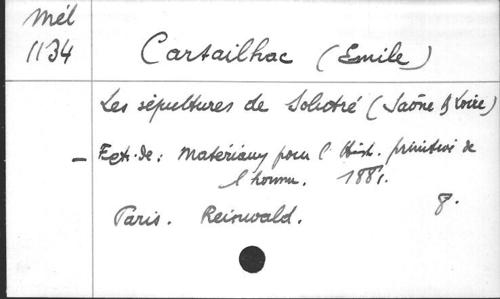 Mél
1134
Cartailhac (Emile)
Les sépultures de Solutré (Saône & Loire)
– Extr. de : Matériaux pour l'Hist. primitive de
l'homme. 1881.
8.
Paris. Reinwald.